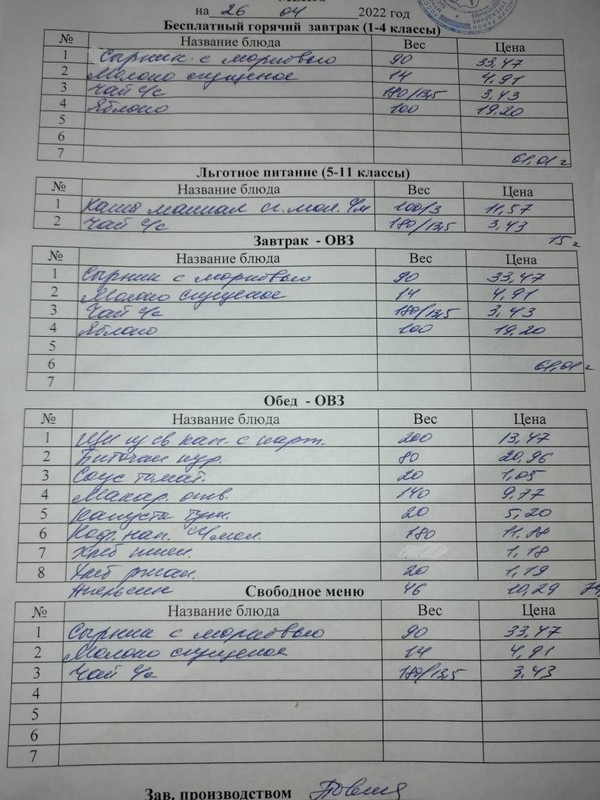 на 26 04 2022 год
Бесплатный горячий завтрак (1-4 классы)
№ Название блюда Вес Цена
1 Сырник с морковью 90 33,47
2 Молоко сгущеное 14 4,91
3 Чай с/с 180/13,5 3,43
4 Яблоко 100 19.20
5
6
7 61,01 г
Льготное питание (5-11 классы)
№ Название блюда Вес Цена
1 Каша манная 100/3 11,57
2 Чай с/с 180/13,5 3,43
Завтрак - ОВЗ 15 г
№ Название блюда Вес Цена
1 Сырник с морковью 90 33,47
2 Молоко сгущеное 14 4,91
3 Чай с/с 180/13,5 3,43
4 Яблоко 100 19,20
5
6 61,01 г
7
Обед - ОВЗ
№ Название блюда Вес Цена
1 Щи из св кап. с карт. 200 13,47
2 Биточки кур. 80 20,96
3 Соус томат. 20 1,05
4 Макар. отв. 140 9,77
5 Капуста туш. 20 5,20
6 Коф. нап. 180 11,88
7 Хлеб пшен. 1,18
8 Хлеб ржан. 20 1,19
Апельсин 46 10,29
Свободное меню
№ Название блюда Вес Цена
1 Сырник с морковью 90 33,47
2 Молоко сгущеное 14 4,91
3 Чай с/с 180/13,5 3,43
4
5
6
7
Зав. производством